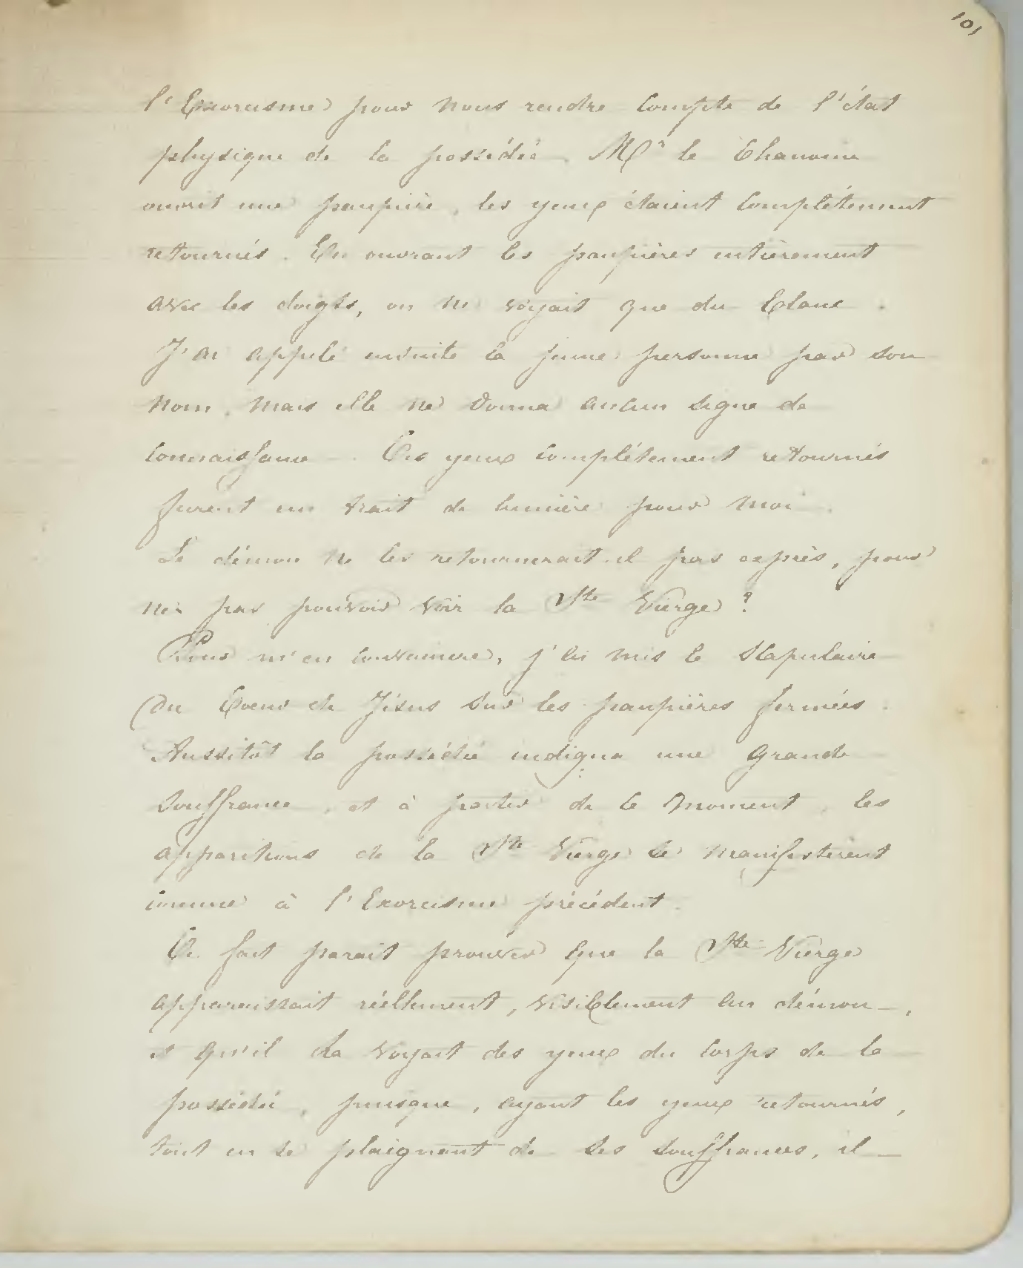 101
l'Exorcisme pour nous rendre compte de l'état
physique de la possédée. Mr le Chanoine
ouvrit une paupière, les yeux étaient complétement
retournés. En ouvrant les paupières entièrement
avec les doigts, on ne voyait que du blanc.
J'ai appelé ensuite la jeune personne par son
nom, mais elle ne donna aucun signe de
connaissance. Ces yeux complétement retournés
furent un trait de lumière pour moi.
Le démon ne les retournerait-il pas exprès, pour
ne pas pouvoir voir la Ste Vierge ?
Pour m'en convaincre, j'ai mis le Scapulaire
du Coeur de Jésus sur les paupières fermées.
Aussitôt la possédée indiqua une grande
souffrance, et à partir de ce moment, les
apparitions de la Ste Vierge se manifestèrent
comme à l'Exorcisme précédent.
Ce fait parait prouver que la Ste Vierge
apparaissait réellement, visiblement au démon,
et qu'il la voyait des yeux du corps de la
possédée, puisque, ayant les yeux retournés,
tout en se plaignant de ses souffrances, il